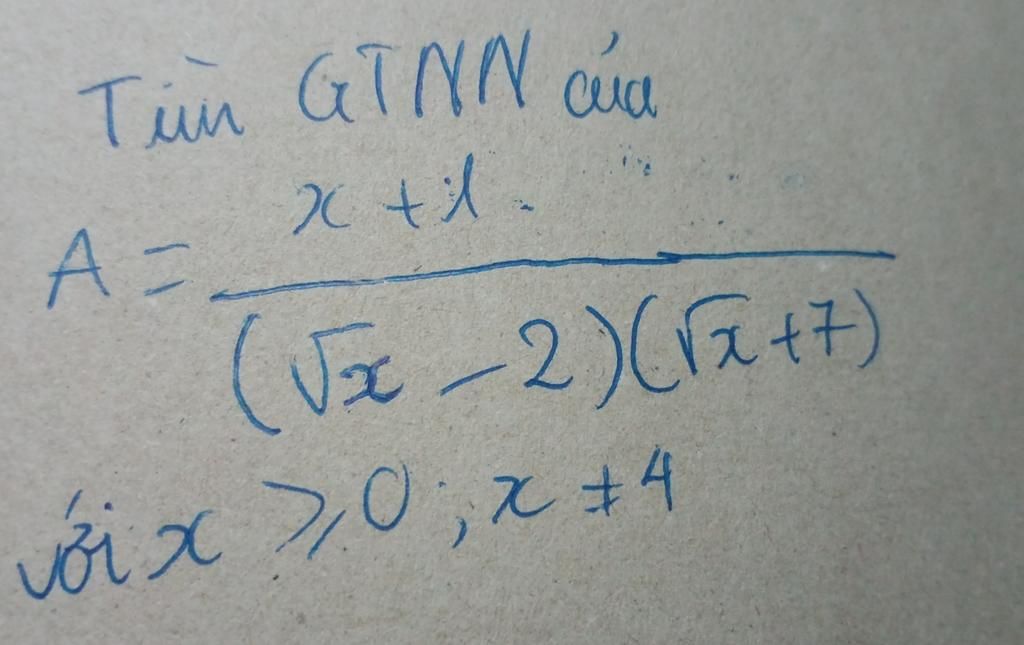 Tìm GTNN của
x + 1
A =
(√x - 2)(√x + 7)
với x ⩾ 0 ; x ≠ 4